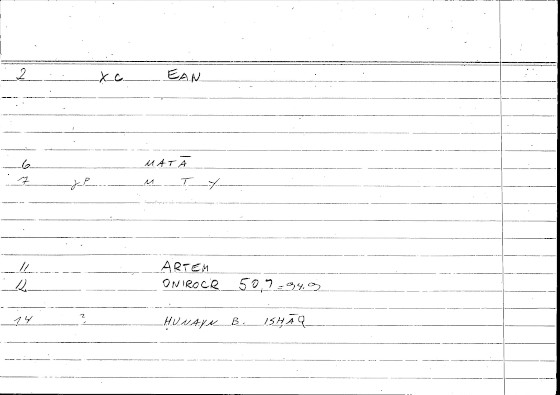 2 XC EAN
6 MATĀ
7 gP M T Y
11 ARTEM
12 ONIROCR 50,9 = 94.9
14 ? ḤUNAYN B. ISḤĀQ